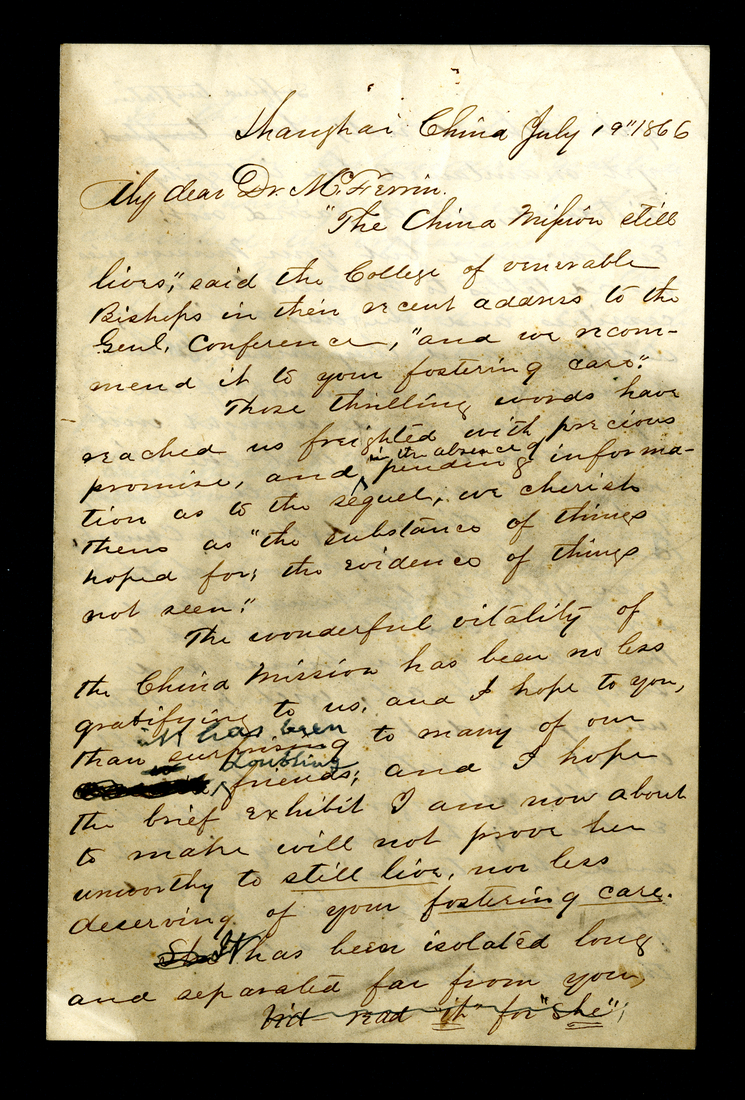 Shanghai China July 19" 1866
My dear Dr. McFerrin.
"The China Mission still
lives," said the College of venerable
Bishops in their recent address to the
Genl. Conference, "and we recom-
mend it to your fostering care."
Those thrilling words have
reached us freighted with precious
promise, and, in the absence of
pending informa-
tion as to the sequel, we cherish
them as "the substance of things
hoped for; the evidence of things
not seen."
The wonderful vitality of
the China Mission has been no less
gratifying to us, and I hope to you,
it has been
than surprising to many of our
doubting
friends; and I hope
the brief exhibit I am now about
to make will not prove her
unworthy to still live, nor less
deserving of your fostering care.
She It has been isolated long
and separated far from you,
read it for "she";